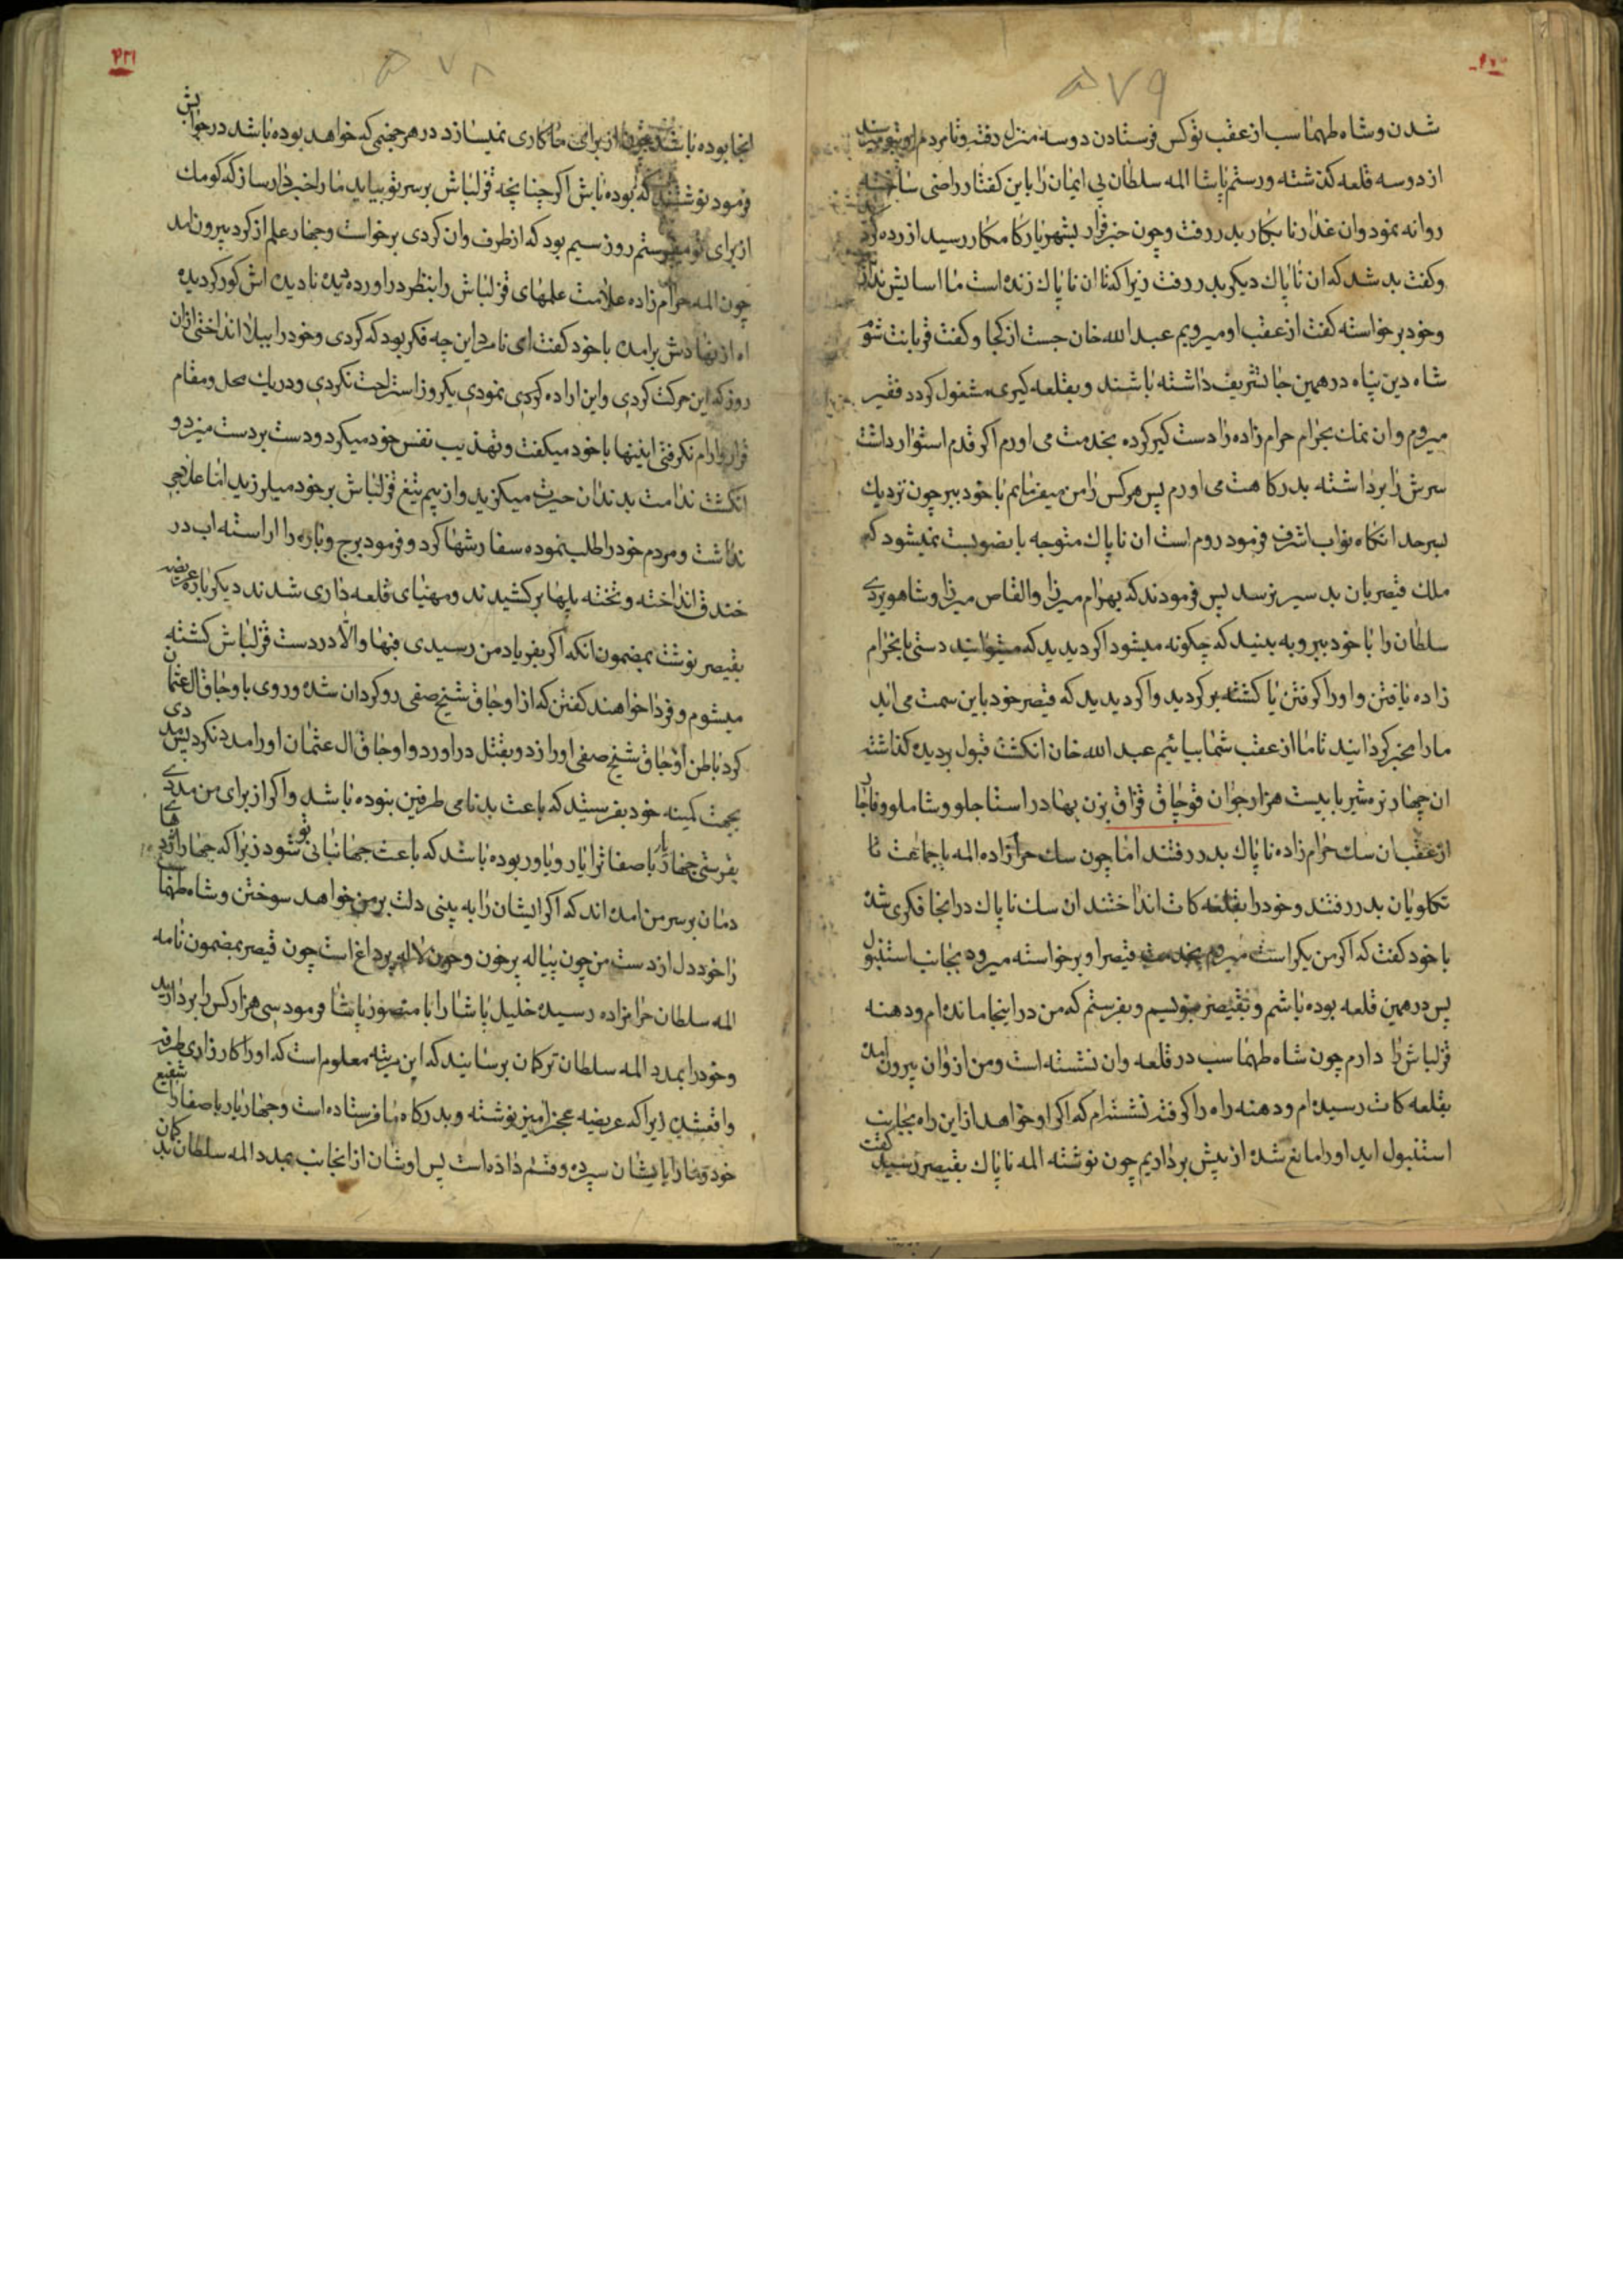 ۵۷۹
شدن و شاه طهماسب از عقب تو کس فرستادن دو سه منزل رفته و تا مردم او
از دو سه قلعه کذشته و رستم پاشا المه سلطان بی ایمان را باین کفتار راضی ساخته
روانه نمود و ان غدار نابکار بدر رفت و چون خبر فرار بشهریار کامکار رسید ازرده
و کفت بد شد که ان ناپاک دیکر بدر رفت زیرا که تا ان ناپاک زنده است ما اسایش
و خود برخواسته کفت از عقب او میرویم عبد الله خان جست از کجا و کفت قربانت شوم
شاه دین پناه در همین جا تشریف داشته باشند و بقلعه کیری مشغول کردد فقیر
میروم و ان نمک بحرام حرام زاده را دست کیر کرده بخدمت می اورم اکر قدم استوار داشت
سرش را برداشته بدرکاهت می اورم پس هر کس را من میفرمایم با خود ببر چون نزدیک
بسرحد انکاه نواب اشرف فرمود روم است ان ناپاک متوجه باید نمیشود که
ملک قیصر بان بد سیر برسد پس فرمودند که بهرام میرزا و القاص میرزا و شاهویردی
سلطان را با خود ببر و به بینید که چکونه میشود اکر دیدید که میتوانید دستی بان حرام
زاده یافتن و او را کرفتن یا کشتن برکردید و اکر دیدید که قیصر خود باین سمت می اید
ما را مخبر کردانید تا ما از عقب شما بیائیم عبد الله خان انکشت قبول بردیده کذاشته
ان چهار نره شیر با بیست هزار جوان قوچاق قزاق بزن بهادر استاجلو و شاملو و قاجار
از عقب ان سک حرام زاده ناپاک بدر رفتند اما چون سک حرامزاده المه با جماعت تا
تکلویان بدر رفتند و خود را بقلعه کات انداختند ان سک ناپاک در انجا فکری شده
با خود کفت که اکر من یکراست میروم بخدمت قیصر او برخواسته میرود بجانب استنبول
پس در همین قلعه بوده باشم و بقیصر بنویسم و بفرستم که من در اینجا مانده ام و دهنه
قزلباش را دارم چون شاه طهماسب در قلعه وان نشسته است و من از وان بیرون امده
بقلعه کات رسیده ام و دهنه راه را کرفته نشسته ام که اکر او خواهد از این راه بجانب
استنبول اید او را مانع شده از پیش برداریم چون نوشته المه ناپاک بقیصر رسید کفت
۵۷۸
انجا بوده باشد چون از برای ما کاری نمیسازد در هر جهنمی که خواهد بوده باشد در جوابش
فرمود نوشتند که بوده باش اکر چنانچه قزلباش بر سر تو بیاید ما را خبردار ساز که کومک
از برای تو میفرستم روز سیم بود که از طرف وان کردی برخواست و چهار علم از کرد بیرون امد
چون المه حرام زاده علامت علمهای قزلباش را بنظر در اورده دیده نادیده اش کور کردیده
اه از نهادش برامده با خود کفت ای نامرد این چه فکر بود که کردی و خود را ببلا انداختی از ان
روز که این حرکت کردی و این اراده کردی نمودی یکروز استراحت نکردی و در یک محل و مقام
قرار و ارام نکرفتی اینها با خود میکفت و تهذیب نفس خود میکرد و دست بر دست میزد و
انکشت ندامت بدندان حیرت میکزید و از بیم تیغ قزلباش بر خود میلرزید اما علاجی
نداشت و مردم خود را طلب نموده سفارشها کرد و فرمود برج و باره را اراسته اب در
خندق انداخته و تخته پلها بر کشیدند و مهیای قلعه داری شدند دیکر باره عریضه
بقیصر نوشت بمضمون انکه اکر بفریاد من رسیدی فبها والا در دست قزلباش کشته
میشوم و فردا خواهند کفتن که از اوجاق شیخ صفی رو کردان شده و روی باوجاق ال عثمان
کرد باطن اوجاق شیخ صفی او را زد و بقتل در اورد و اوجاق ال عثمان او را مدد نکرد پس مددی
بجهت کمینه خود بفرستید که باعث بدنامی طرفین نبوده باشد و اکر از برای من مددی
بفرستی چهار یار با صفا ترا یار و یاور بوده باشد که باعث جهانبانی تو شود زیرا که چهار اژدهای
دمان بر سر من امده اند که اکر ایشان را به بینی دلت بر من خواهد سوختن و شاه طهماسب
را خود دل از دست من چون پیاله پر خون و چون لاله پر داغ است چون قیصر بمضمون نامه
المه سلطان حرامزاده رسیده خلیل پاشا را با منصور پاشا فرمود سی هزار کس را بردارید
و خود را بمدد المه سلطان ترکمان برسانید که این مرتبه معلوم است که او را کار زاری طرفه
واقعشده زیرا که عریضه عجز امیز نوشته و بدرکاه ما فرستاده است و چهار یار با صفا را شفیع
خود و ما را بایشان سپرده و قسم داده است پس اوشان از انجانب بمدد المه سلطان